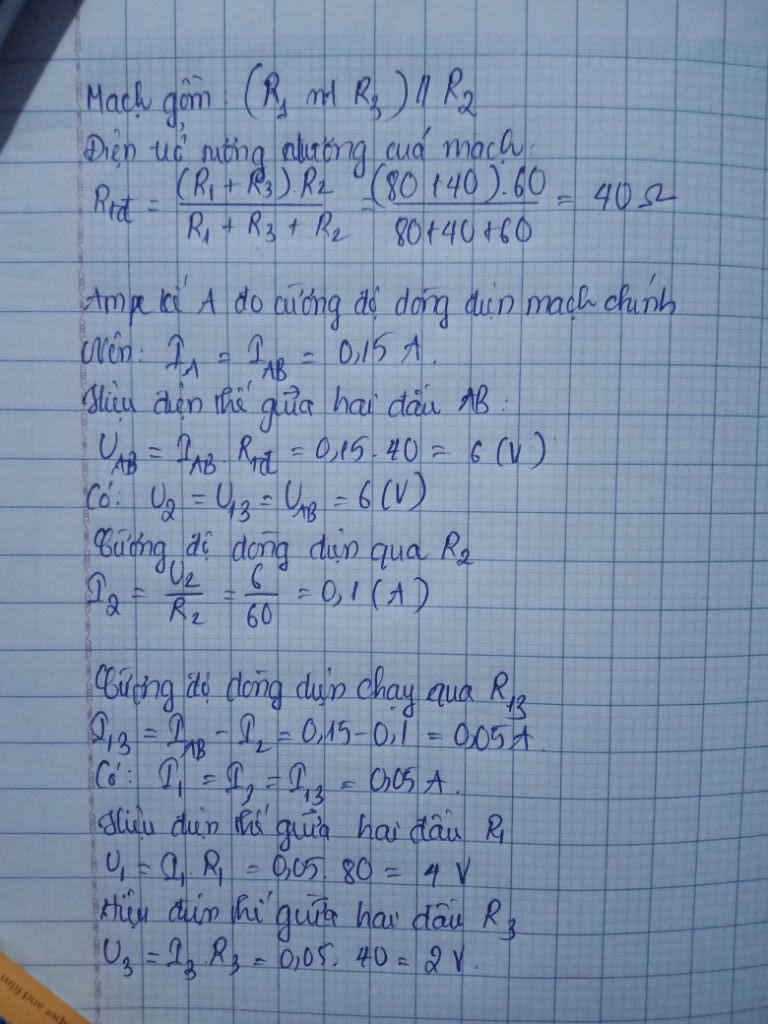 Mạch gồm: (R₁ nt R₃) // R₂
Điện trở tương đương của mạch:
Rtđ = (R₁ + R₃).R₂ / (R₁ + R₃ + R₂) = (80+40).60 / (80+40+60) = 40Ω
Ampe kế A đo cường độ dòng điện mạch chính
Nên: I_A = I_AB = 0,15 A.
Hiệu điện thế giữa hai đầu AB:
U_AB = I_AB . Rtđ = 0,15 . 40 = 6 (V)
Có: U₂ = U₁₃ = U_AB = 6 (V)
Cường độ dòng điện qua R₂
I₂ = U₂ / R₂ = 6 / 60 = 0,1 (A)
Cường độ dòng điện chạy qua R₁₃
I₁₃ = I_AB - I₂ = 0,15 - 0,1 = 0,05 A.
Có: I₁ = I₃ = I₁₃ = 0,05 A.
Hiệu điện thế giữa hai đầu R₁
U₁ = I₁ . R₁ = 0,05 . 80 = 4 V
Hiệu điện thế giữa hai đầu R₃
U₃ = I₃ . R₃ = 0,05 . 40 = 2 V.